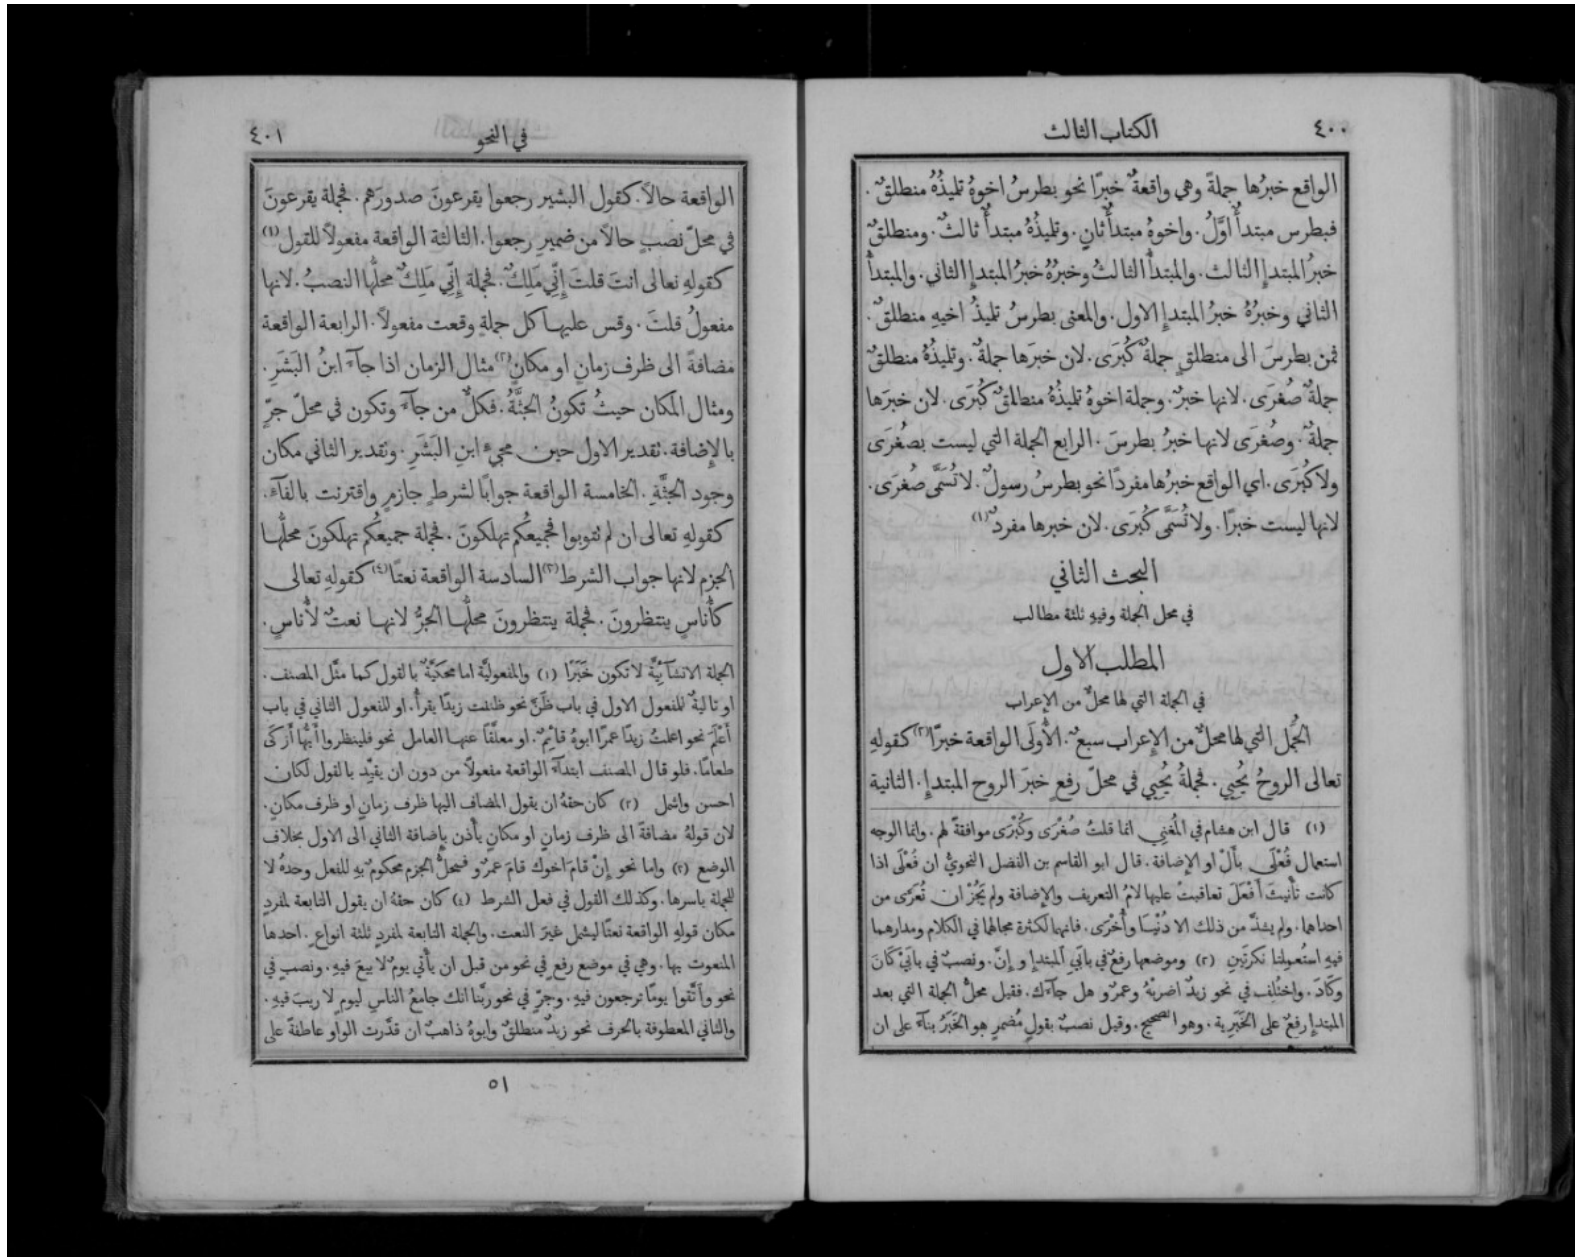 ٤٠٠
الكتاب الثالث
الواقع خبرُها جملةً وهي واقعةٌ خبرًا نحو بطرسُ اخوهُ تلميذُهُ منطلقٌ.
فبطرس مبتدأٌ اوَّلُ. واخوهُ مبتدأٌ ثانٍ. وتلميذُهُ مبتدأٌ ثالثٌ. ومنطلقٌ
خبرُ المبتدإِ الثالث. والمبتدأُ الثالثُ وخبرُهُ خبرُ المبتدإِ الثاني. والمبتدأُ
الثاني وخبرُهُ خبرُ المبتدإِ الاول. والمعنى بطرسُ تلميذُ اخيهِ منطلقٌ.
فمن بطرسَ الى منطلقٍ جملةٌ كُبرَى. لان خبرَها جملةٌ. وتلميذُهُ منطلقٌ
جملةٌ صُغرَى. لانها خبرٌ. وجملة اخوهُ تلميذُهُ منطلقٌ كُبرَى. لان خبرَها
جملةٌ. وصُغرَى لانها خبرُ بطرسَ. الرابع الجملة التي ليست بصُغرَى
ولا كُبرَى. اي الواقع خبرُها مفردًا نحو بطرسُ رسولٌ. لا تُسَمَّى صُغرَى.
لانها ليست خبرًا. ولا تُسَمَّى كُبرَى. لان خبرها مفردٌ (١)
البحث الثاني
في محل الجملة وفيهِ ثلثة مطالب
المطلب الاول
في الجملة التي لها محلٌّ من الإعراب
الجُمَل التي لها محلٌّ من الإعراب سبعٌ. الأُولَى الواقعة خبرًا (٢) كقولهِ
تعالى الروحُ يُحيِي. فجملةُ يُحيِي في محلّ رفعٍ خبرَ الروح المبتدإِ. الثانية
(١) قال ابن هشام في المُغنِي انما قلتُ صُغْرَى وكُبْرَى موافقةً لهم. وانما الوجه
استعمال فُعْلَى بأَلْ او الإضافة. قال ابو القاسم بن الفضل النحويُّ ان فُعْلَى اذا
كانت تأنيثَ أَفْعَلَ تعاقبتْ عليها لامُ التعريف والإضافة ولم يَجُزْ ان تُعرَّى من
احداهما. ولم يشذَّ من ذلك الا دُنْيا وأُخْرَى. فانهما لكثرة مجالها في الكلام ومدارهما
فيهِ استُعمِلتا نكرتَينِ (٢) وموضعها رفعٌ في بابَيِ المبتدإِ وإِنَّ. ونصبٌ في بابَيْ كَانَ
وكَادَ. واختُلف في نحو زيدٌ اضربْهُ وعمرٌو هل جآءَك. فقيل محلُّ الجملة التي بعد
المبتدإِ رفعٌ على الخَبَرِية. وهو الصحيح. وقيل نصبٌ بقولٍ مُضمَرٍ هو الخَبَرُ بنآءً على ان
في النحو
٤٠١
الواقعة حالاً. كقول البشير رجعوا يقرعونَ صدورَهم. فجملة يقرعونَ
في محلّ نصبٍ حالاً من ضميرِ رجعوا. الثالثة الواقعة مفعولاً للقول (١)
كقولهِ تعالى انتَ قلتَ إِنِّي مَلِكٌ. فجملة إِنِّي مَلِكٌ محلُّها النصبُ. لانها
مفعولُ قلتَ. وقس عليها كل جملةٍ وقعت مفعولاً. الرابعة الواقعة
مضافةً الى ظرف زمانٍ او مكانٍ (٢) مثال الزمان اذا جآءَ ابنُ البَشَرِ.
ومثال المكان حيثُ تكونُ الجثَّةُ. فكلٌّ من جآءَ وتكون في محلّ جرٍّ
بالإضافة. تقدير الاول حين مجيءِ ابنِ البَشَرِ. وتقدير الثاني مكان
وجود الجثَّةِ. الخامسة الواقعة جوابًا لشرطٍ جازمٍ واقترنت بالفآءِ.
كقولهِ تعالى ان لم تتوبوا فجميعُكم تهلكونَ. فجملة جميعُكم تهلكونَ محلُّها
الجزم لانها جواب الشرط (٣) السادسة الواقعة نعتًا (٤) كقولهِ تعالى
كأُناسٍ ينتظرونَ. فجملة ينتظرونَ محلُّها الجرُّ لانها نعتٌ لأُناسٍ.
الجملة الانشآئيَّة لا تكون خَبَرًا (١) والمفعوليَّة اما محكيَّةٌ بالقول كما مثَّل المصنف.
او تاليةٌ للمفعول الاول في باب ظَنَّ نحو ظننت زيدًا يقرأُ. او للمفعول الثاني في باب
أَعْلَمَ نحو اعلمتُ زيدًا عمرًا ابوهُ قائمٌ. او معلَّقًا عنها العامل نحو فلينظروا أَيُّها أَزْكَى
طعامًا. فلو قال المصنف ابتدآءً الواقعة مفعولاً من دون ان يقيِّد بالقول لكان
احسن واشمل (٢) كان حقهُ ان يقول المضاف اليها ظرف زمانٍ او ظرف مكانٍ.
لان قولهُ مضافةً الى ظرف زمانٍ او مكانٍ يأْذن بإِضافة الثاني الى الاول بخلاف
الوضع (٣) واما نحو إِنْ قامَ اخوك قامَ عمرٌو فمحلُّ الجزم محكومٌ بهِ للفعل وحدهُ لا
للجملة باسرها. وكذلك القول في فعل الشرط (٤) كان حقهُ ان يقول التابعة لمفردٍ
مكان قولهِ الواقعة نعتًا ليشمل غيرَ النعت. والجملة التابعة لمفردٍ ثلثة انواعٍ. احدها
المنعوت بها. وهي في موضع رفعٍ في نحو من قبل ان يأتي يومٌ لا بيعَ فيهِ. ونصبٍ في
نحو واتَّقوا يومًا ترجعون فيهِ. وجرٍّ في نحو ربَّنا انك جامعُ الناسِ ليومٍ لا ريبَ فيهِ.
والثاني المعطوفة بالحرف نحو زيدٌ منطلقٌ وابوهُ ذاهبٌ ان قدَّرت الواو عاطفةً على
٥١